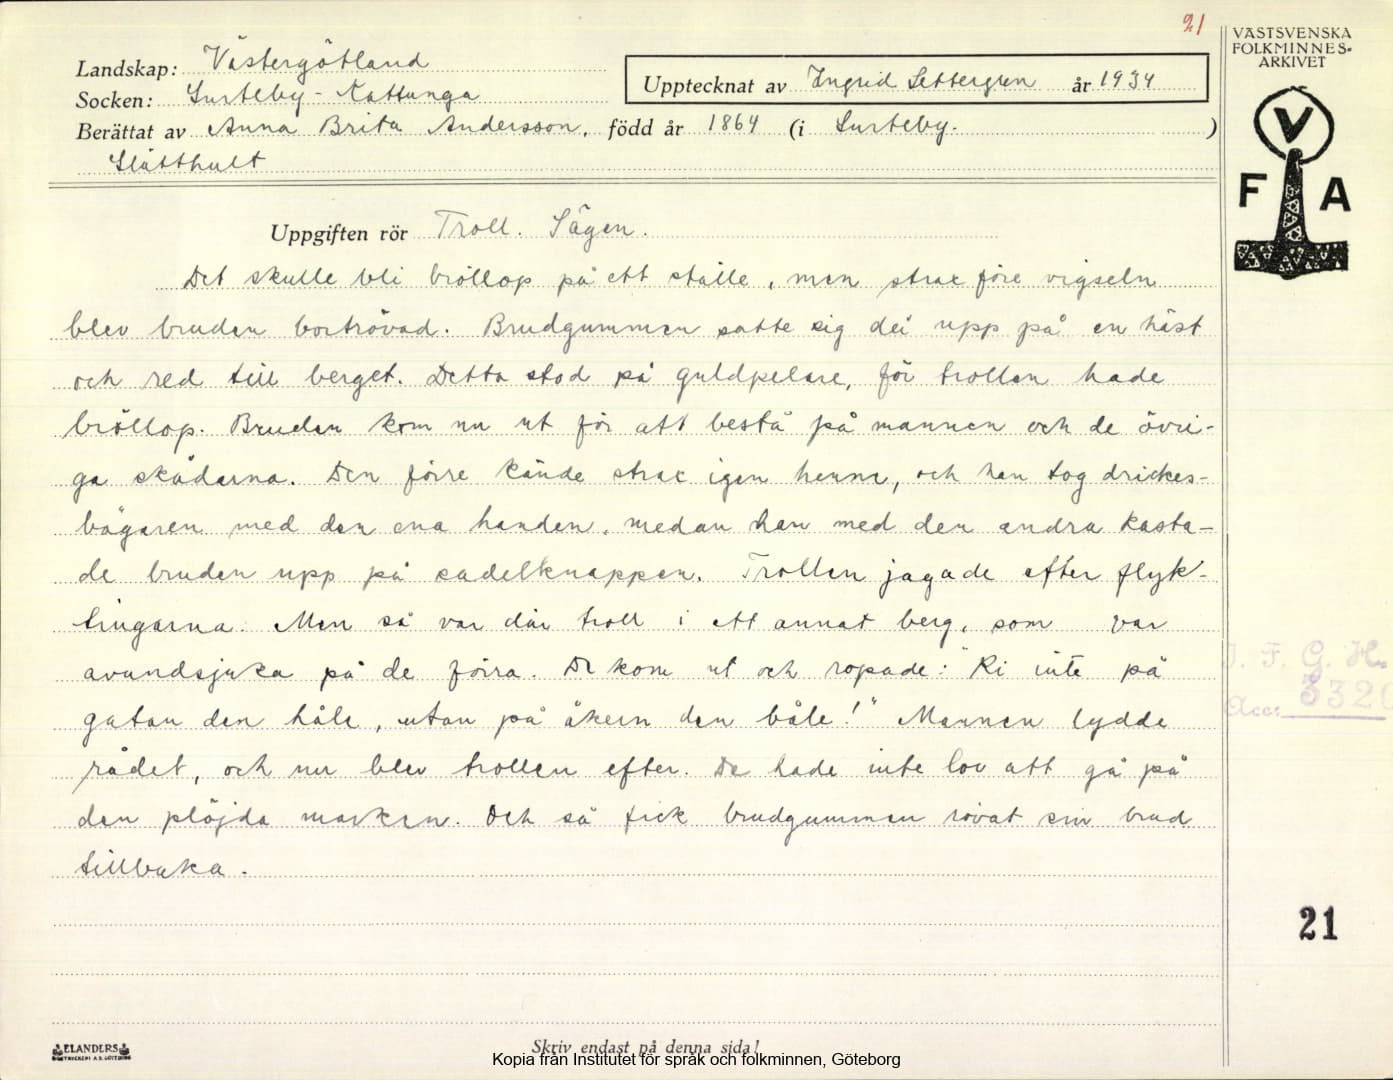 21
VÄSTSVENSKA
FOLKMINNES-
ARKIVET
V
F A
Landskap: Västergötland
Socken: Surteby - Kattunga
Upptecknat av Ingrid Settergren år 1934
Berättat av Anna Brita Andersson, född år 1864 (i Surteby. )
Slätthult
Uppgiften rör Troll. Sägen.
Det skulle bli bröllop på ett ställe, men strax före vigseln
blev bruden bortrövad. Brudgummen satte sig då upp på en häst
och red till berget. Detta stod på guldpelare, för trollen hade
bröllop. Bruden kom nu ut för att bestå på mannen och de övri-
ga skådarna. Den förre kände strax igen henne, och han tog drickes-
bägaren med den ena handen, medan han med den andra kasta-
de bruden upp på sadelknappen. Trollen jagade efter flyk-
tingarna. Men så var där troll i ett annat berg, som var
avundsjuka på de förra. De kom ut och ropade: "Ri inte på
gatan den håle, utan på åkern den båle!" Mannen lydde
rådet, och nu blev trollen efter. De hade inte lov att gå på
den plöjda marken. Och så fick brudgummen rövat sin brud
tillbaka.
I. F. G. H.
Acc: 3320
21
ELANDERS
Skriv endast på denna sida!
Kopia från Institutet för språk och folkminnen, Göteborg